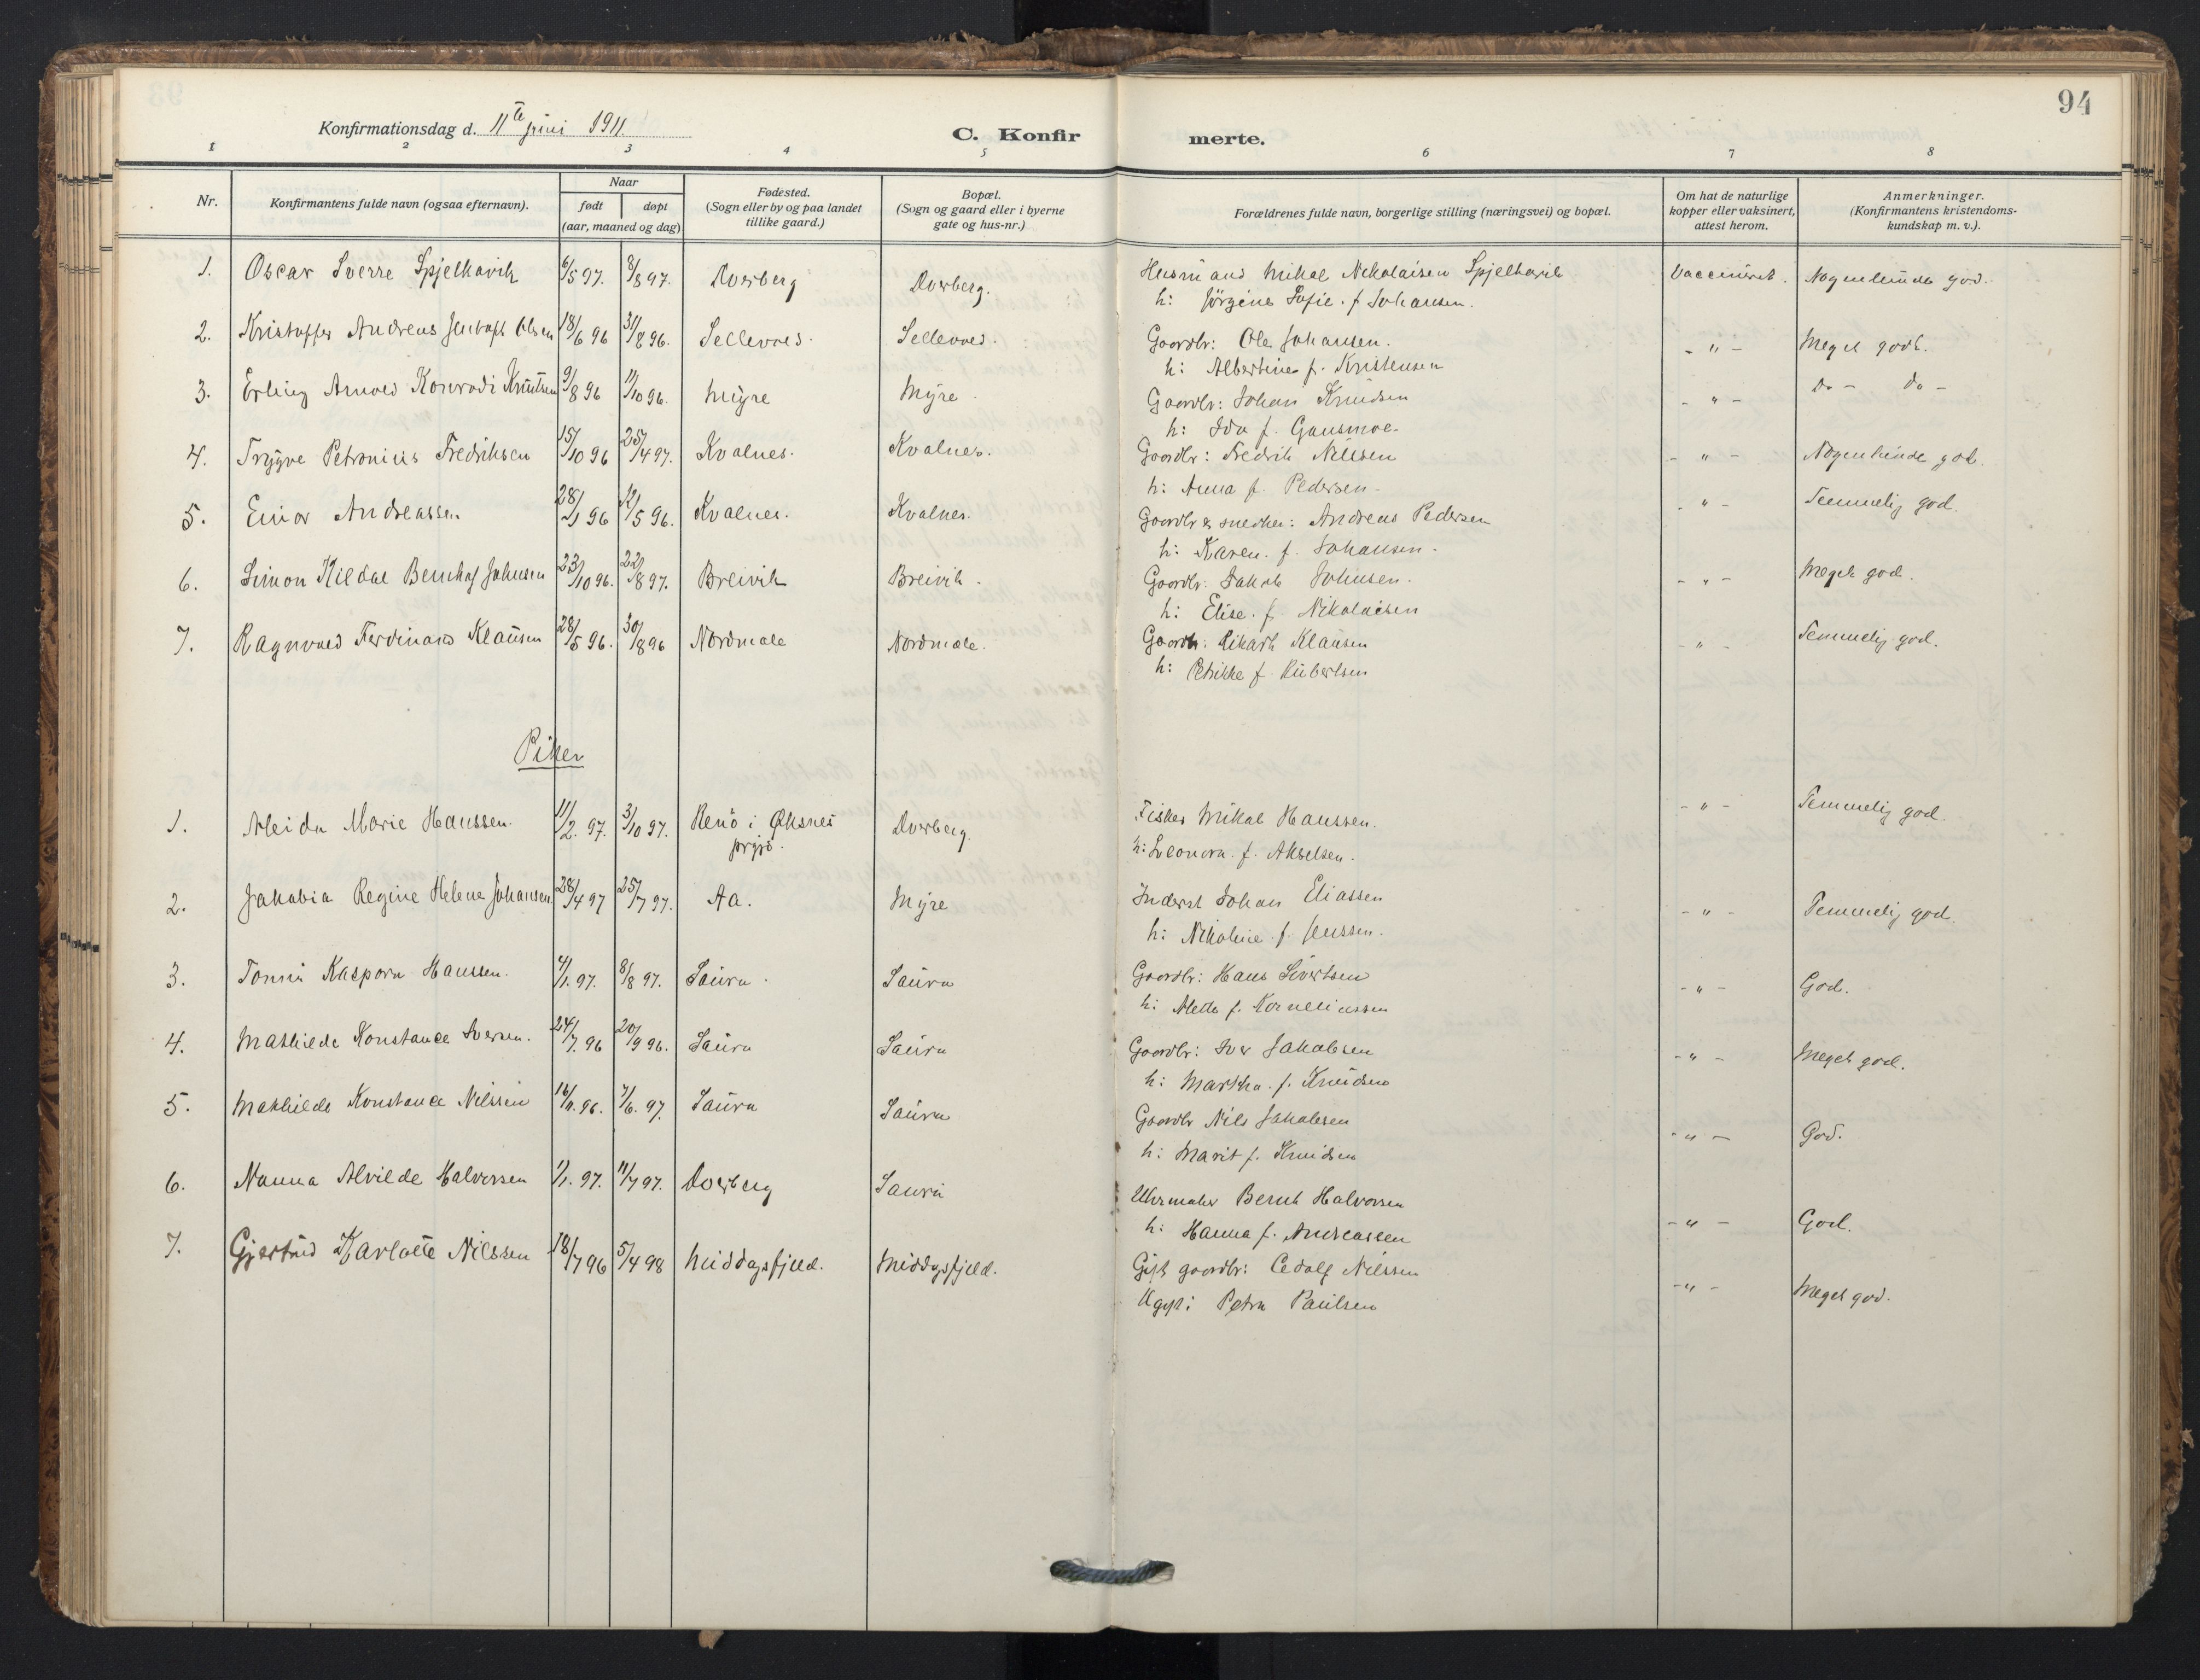 94
Konfirmationsdag d. 11te juni 1911
C. Konfirmerte.
1 2 3 4 5 6 7 8
Nr. Konfirmantens fulde navn (ogsaa efternavn). Naar født døpt (aar, maaned og dag) Fødested. (Sogn eller by og paa landet tillike gaard.) Bopæl. (Sogn og gaard eller i byerne gate og hus-nr.) Forældrenes fulde navn, borgerlige stilling (næringsvei) og bopæl. Om hat de naturlige kopper eller vaksinert, attest herom. Anmerkninger. (Konfirmantens kristendoms-kundskap m. v.).
1. Oscar Sverre Spjelkavik 6/5 97. 8/8 97. Dverberg Dverberg. Husmand Mikal Nikolaisen Spjelkavik Vaccineret. Nogenlunde god.
h: Jørgine Sofie f. Johansen.
2. Kristoffer Andreas Jentoft Olsen 18/6 96 31/8 96. Sellevoes. Sellevoes. Gaardbr: Ole Johansen. - " - Meget godt.
h: Albertine f. Kristensen
3. Erling Arnold Konradi Knutsen 9/8 96 11/10 96. Myre Myre. Gaardbr: Johan Knudsen - " - do - do -
h: Ida f. Gausmoe
4. Trygve Petronius Fredriksen 15/10 96 25/4 97. Kvalnes. Kvalnes. Gaardbr: Fredrik Nilssen - " - Nogenlunde god.
h: Anna f. Pedersen
5. Einar Andreassen 28/1 96 12/5 96. Kvalnes. Kvalnes. Gaardbr & snedker: Andreas Pedersen - " - Temmelig god.
h: Karen f. Johansen
6. Simon Kildal Bernhof Johnsen 23/10 96. 22/8 97. Breivik Breivik. Gaardbr: Jakob Johnsen. - " - Meget god.
h: Elise f. Nikolaisen
7. Ragnvald Ferdinand Klausen 28/5 96. 30/8 96 Nordmele Nordmele. Gaardbr: Rikart Klausen - " - Temmelig god.
h: Petrikke f. Hübertsen
Piker
1. Aleida Marie Hanssen. 11/2. 97. 3/10 97. Renö i Øksnes prgjd. Dverberg. Fisker Mikal Hanssen. - " - Temmelig god.
h: Leonora f. Akselsen.
2. Jakobia Regine Helene Johansen 28/4 97 25/7 97. Aa. Myre Inderst Johan Eliassen - " - Temmelig god.
h: Nikoline f. Jenssen.
3. Tomine Kaspara Hanssen. 4/1. 97. 8/8 97. Saura. Saura Gaardbr: Hans Sivertsen - " - God.
h: Mette f. Korneliussen
4. Mathilde Konstance Iversen. 24/7. 96 20/9 96. Saura Saura Gaardbr: Iver Jakobsen - " - Meget god.
h: Martha f. Knudsen
5. Mathilde Konstance Nilssen 16/11. 96. 7/6. 97. Saura Saura Gaardbr Nils Jakobsen - " - God.
h: Marit f. Knudsen
6. Nanna Alvilde Halvorsen 1/1. 97. 11/7 97. Dverberg Saura Uhrmaker Bernt Halvorsen - " - God.
h: Hanna f. Andreassen
7. Gjertrud Karlotte Nilssen 18/7 96 5/4 98 Middagsfjeld. Middagsfjeld. Gift gaardbr: Edolf Nilssen - " - Meget god.
Ugift: Petra Paulsen